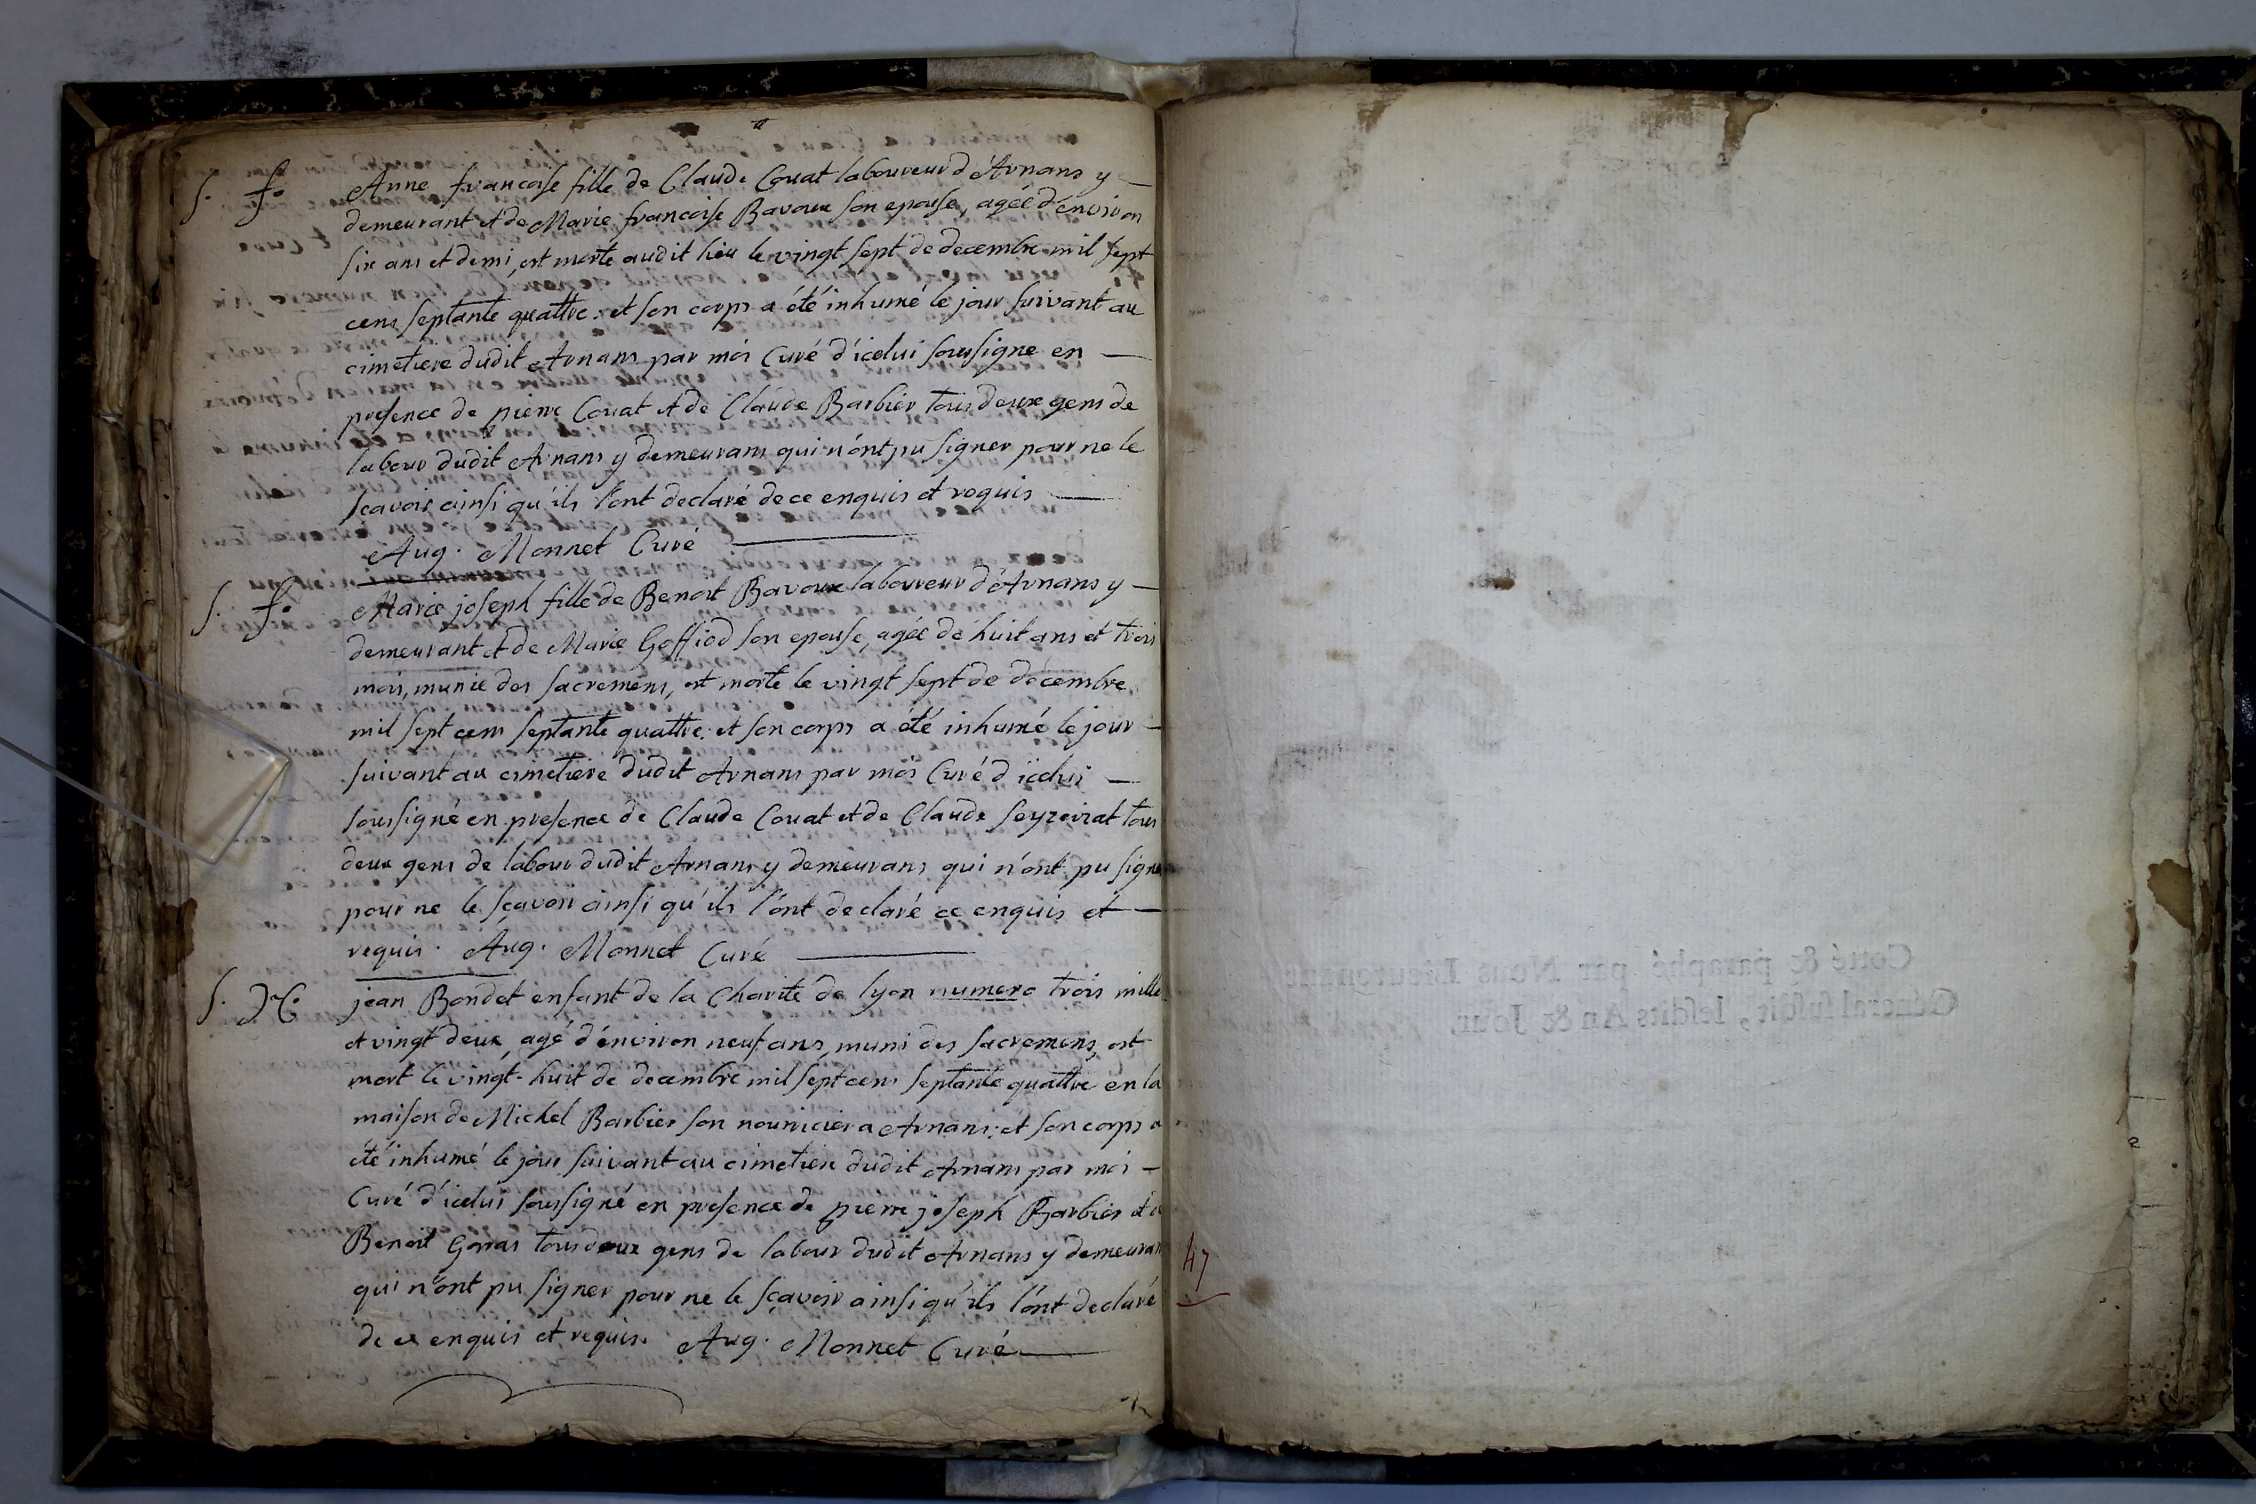 S. f. Anne francoise fille de Claude Couat laboureur d'Arnans y
demeurant et de Marie francoise Bavoux son epouse, agée d'environ
six ans et demi, est morte audit lieu le vingt sept de decembre mil sept
cens septante quattre. et son corps a été inhumé le jour suivant au
cimetiere dudit Arnans par moi Curé d'icelui soussigne en
presence de pierre Couat et de Claude Barbier tous deux gens de
labour dudit Arnans y demeurans qui n'ont pu signer pour ne le
sçavoir ainsi qu'ils l'ont declaré de ce enquis et requis
Aug. Monnet Curé
S. f. Marie joseph fille de Benoit Bavoux laboureur d'Arnans y
demeurant et de Marie Goffiod son epouse, agée de huit ans et trois
mois, munie des sacremens, est morte le vingt sept de decembre
mil sept cens septante quattre. et son corps a été inhumé le jour
suivant au cimetiere dudit Arnans par moi Curé d'icelui
soussigné en presence de Claude Couat et de Claude Seyzeriat tous
deux gens de labour dudit Arnans y demeurans qui n'ont pu signe
pour ne le sçavoir ainsi qu'ils l'ont declaré ce enquis et
requis. Aug. Monnet Curé
S. jean Bondet enfant de la Charité de lyon numero trois mille
et vingt deux, agé d'environ neuf ans, muni des sacremens, est
mort le vingt-huit de decembre mil sept cens septante quattre en la
maison de Michel Barbier son nourricier a Arnans; et son corps a
été inhumé le jour suivant au cimetiere dudit Arnans par moi
Curé d'icelui soussigné en presence de pierre joseph Barbier et
Benoit tous deux gens de labour dudit Arnans y demeuran
qui n'ont pu signer pour ne le sçavoir ainsi qu'ils l'ont declaré
de ce enquis et requis. Aug. Monnet Curé
47
Cotté & paraphé par Nous Lieutenant
Général susdit, lesdits An & Jour.
2